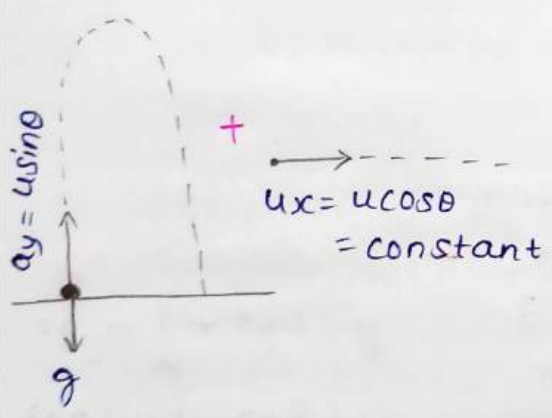 ay = usinθ
+
ux = ucosθ
= constant
g